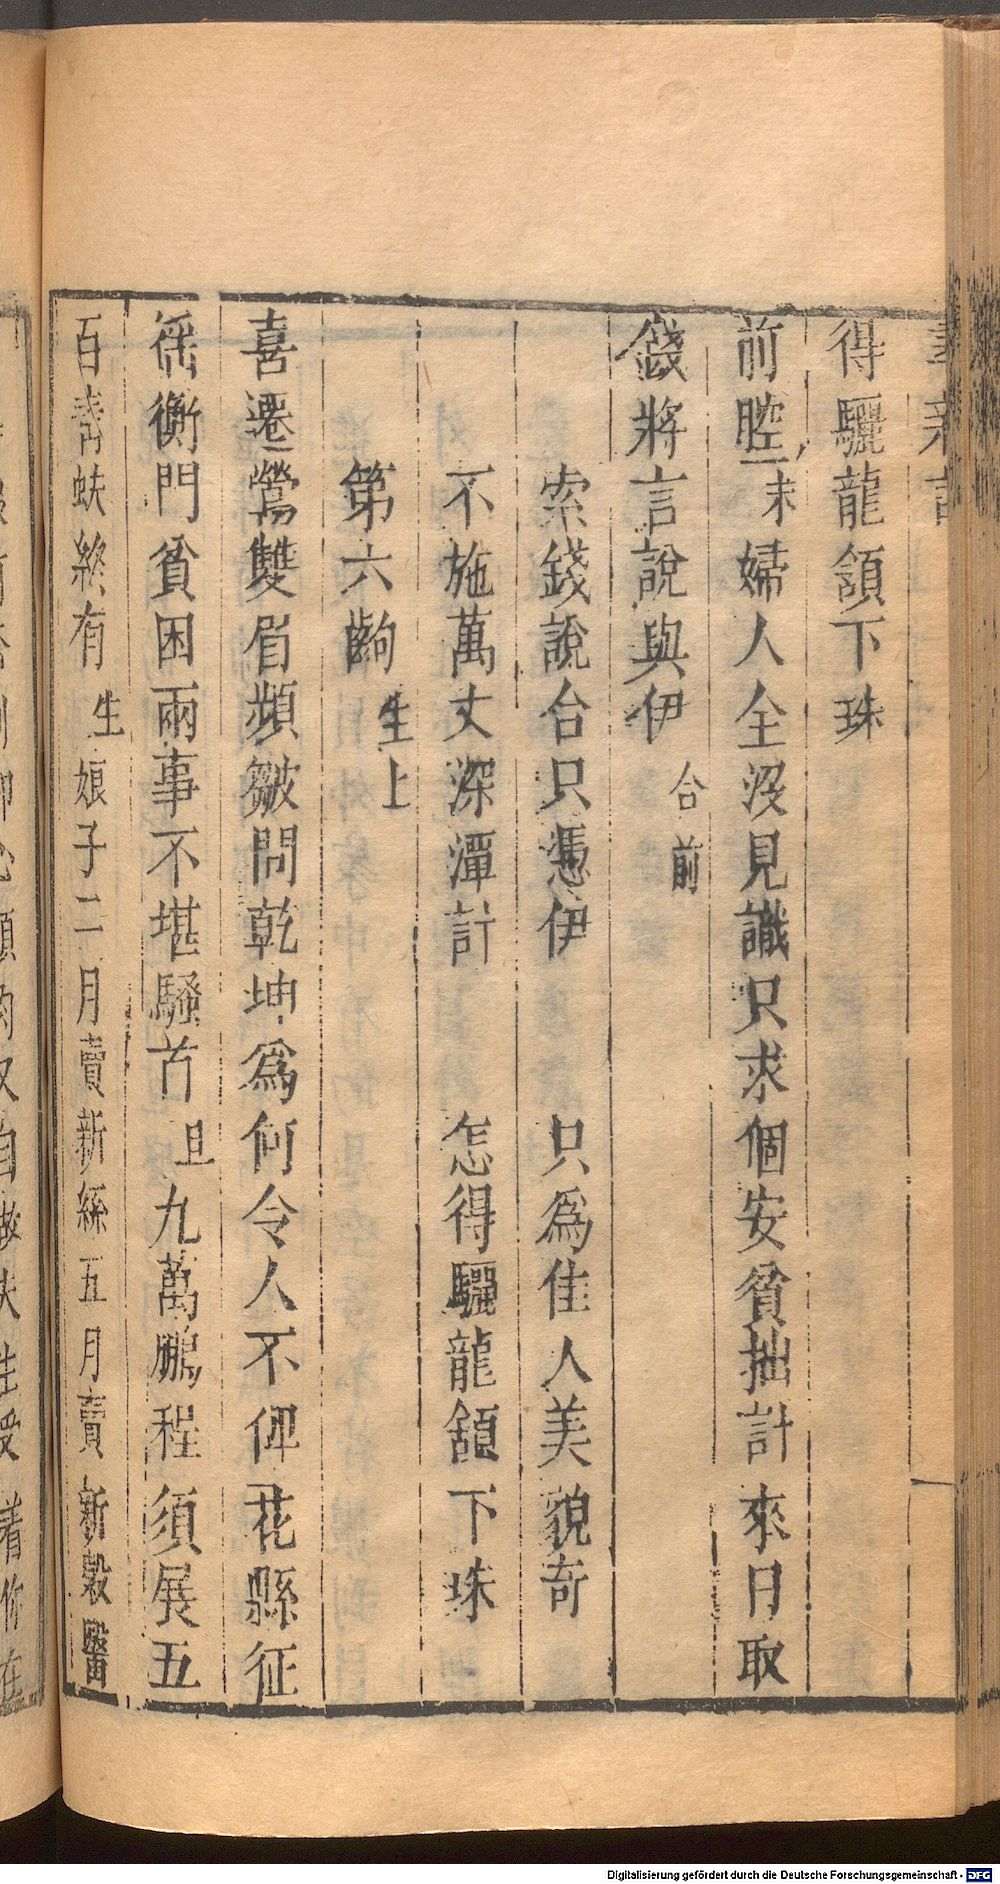 得驪龍頷下珠
前腔末婦人全沒見識只求個安貧拙計來日取
錢將言說與伊合前
索錢說合只憑伊 只爲佳人美貌奇
不施萬丈深潭計 怎得驪龍頷下珠
第六齣 生上
喜遷鶯雙眉頻皺問乾坤爲何令人不偶花縣征
徭衡門貧困兩事不堪騷首旦九萬鵬程須展五
百青蚨終有生娘子二月賣新絲五月賣新穀醫
Digitalisierung gefördert durch die Deutsche Forschungsgemeinschaft - DFG